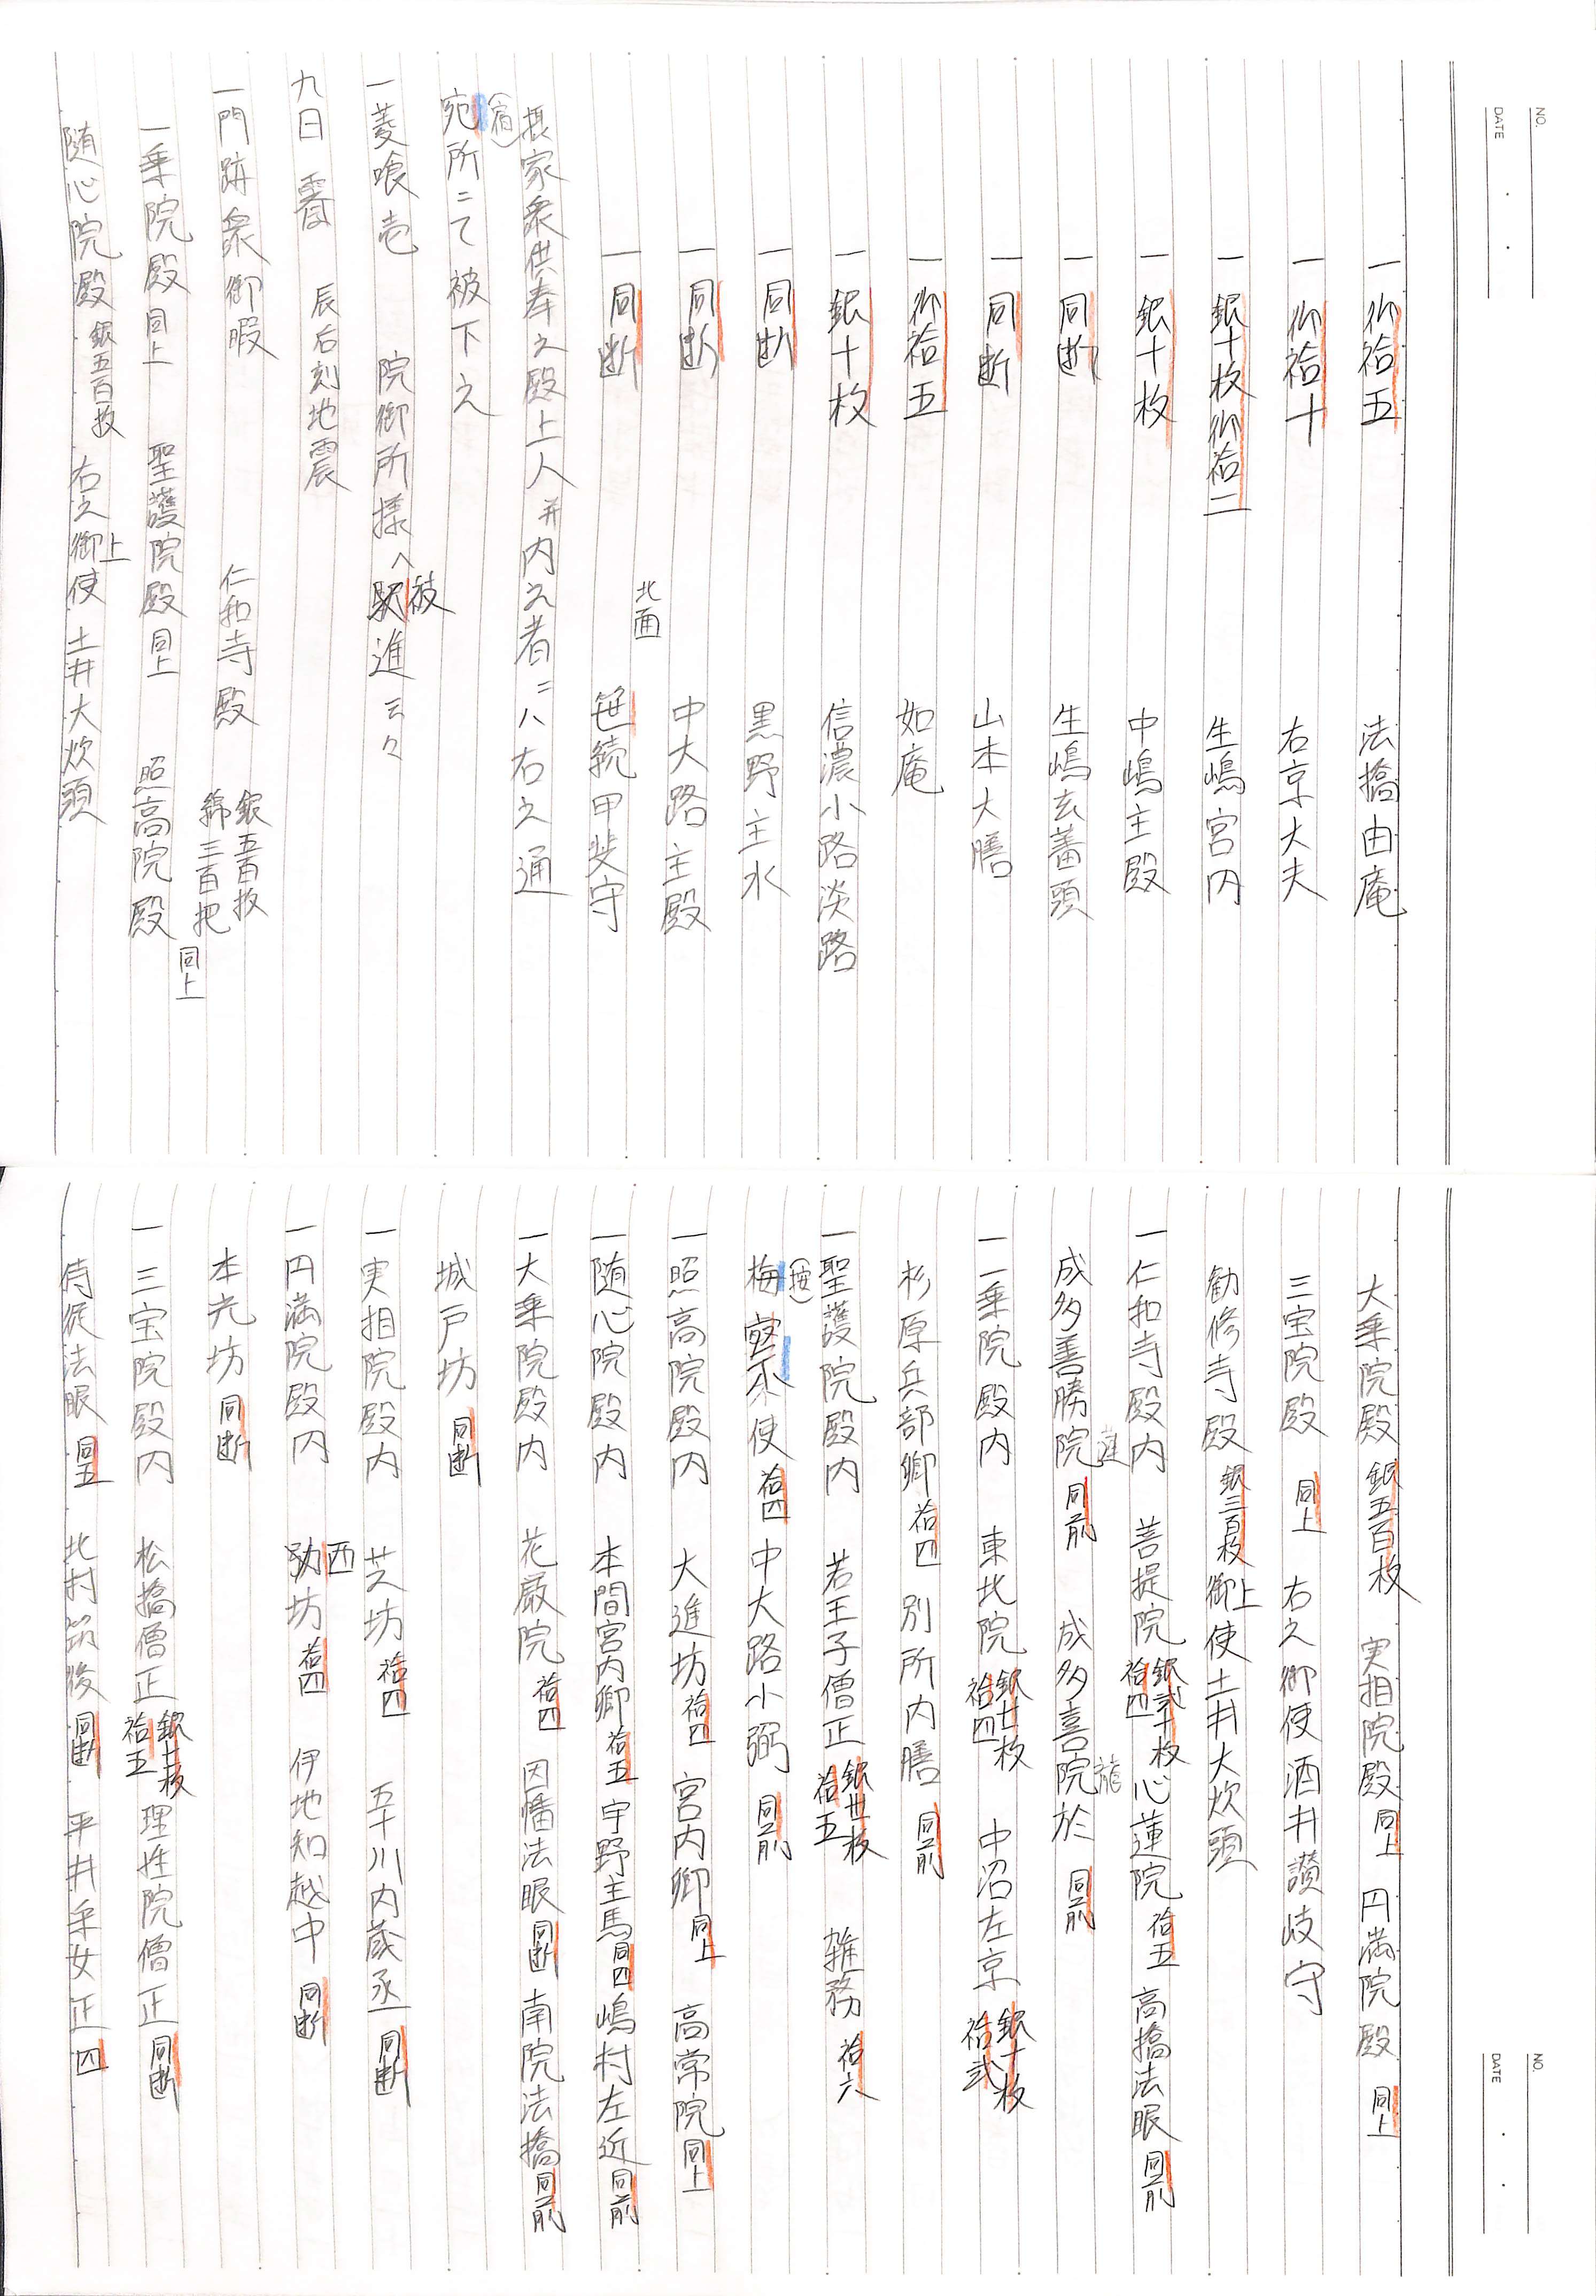 NO.
DATE
一 仰袷五 法橋由庵
一 仰袷十 右京大夫
一 銀十枚仰袷二 生嶋宮内
一 銀十枚 中嶋主殿
一 同断 生嶋玄蕃頭
一 同断 山本大膳
一 仰袷五 如庵
一 銀十枚 信濃小路淡路
一 同断 黒野主水
一 同断 中大路主殿
北面
一 同断 笹続甲斐守
摂家衆供奉之殿上人并内之者ニハ右之通
(宿)
宛所ニて被下之
一菱喰壱 院御所様へ被進云々
九日 霽 辰后刻地震
一門跡衆御暇 仁和寺殿 銀五百枚 綿三百把
一乗院殿同上 聖護院殿同上 照高院殿同上
随心院殿銀五百枚 右之御上使土井大炊頭
NO.
DATE
大乗院殿銀五百枚 実相院殿同上 円満院殿同上
三宝院殿同上 右之御使酒井讃岐守
勧修寺殿銀三百枚御上使土井大炊頭
一仁和寺殿内 菩提院銀弐十枚袷四 心蓮院袷五 高橋法眼同前
成多善勝院同前 成多喜院於同前
一一乗院殿内 東北院銀廿枚袷四 中沼左京銀十枚袷弐
杉原兵部卿袷四 別所内膳同前
一聖護院殿内 若王子僧正銀卅枚袷五 雑務袷六
(按)
梅 使袷四 中大路小弼同前
一照高院殿内 大進坊袷四 宮内卿同上 高常院同上
一随心院殿内 本間宮内卿袷五 宇野主馬同四 嶋村左近同前
一大乗院殿内 花厳院袷四 因幡法眼同断 南院法橋同前
城戸坊同断
一実相院殿内 芝坊袷四 五十川内蔵丞同断
一円満院殿内 西坊袷四 伊地知越中同断
本光坊同断
一三宝院殿内 松橋僧正銀廿枚袷五 理性院僧正同断
侍従法眼同五 北村筑後同断 平井采女正四